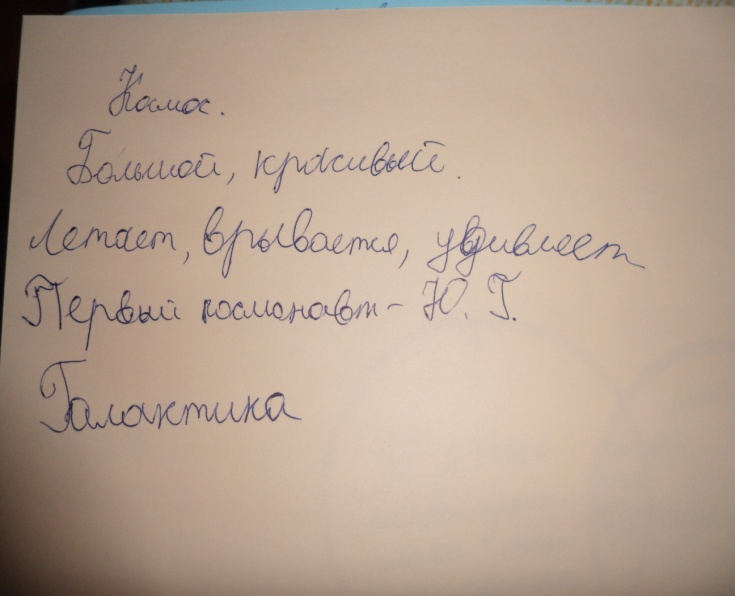 Космос.
Большой, красивый.
Летает, врывается, удивляет
Первый космонавт - Ю. Г.
Галактика